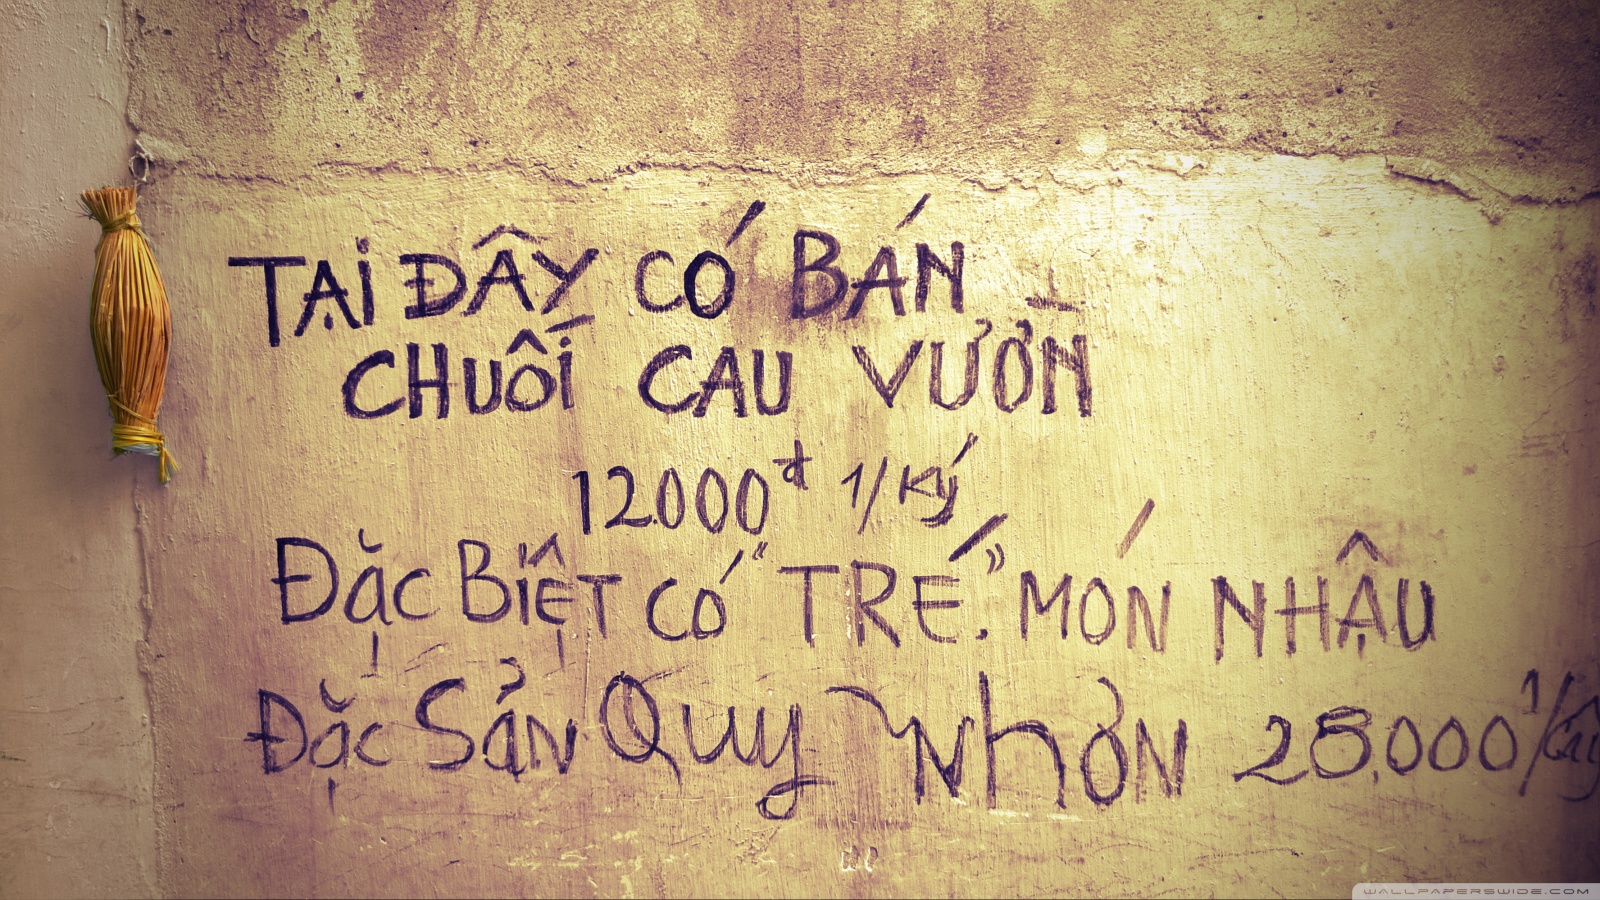 TẠI ĐÂY CÓ BÁN
CHUỐI CAU VƯỜN
12.000đ 1/Ký
ĐẶC BIỆT CÓ "TRÉ". MÓN NHẬU
ĐẶC SẢN QUY NHƠN 28.000 1/
WALLPAPERSWIDE.COM